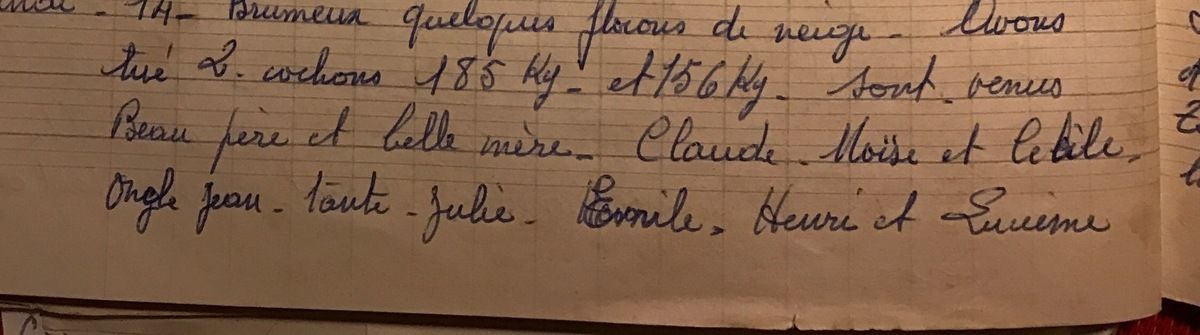 14 - Brumeux quelques flocons de neige - Avons
tué 2 - cochons 185 Kg - et 156 Kg - sont - venus
Beau père et belle mère - Claude - Moïse et Cécile -
Ongle Jean - tante - Julie - Emile, Henri et Lucienne